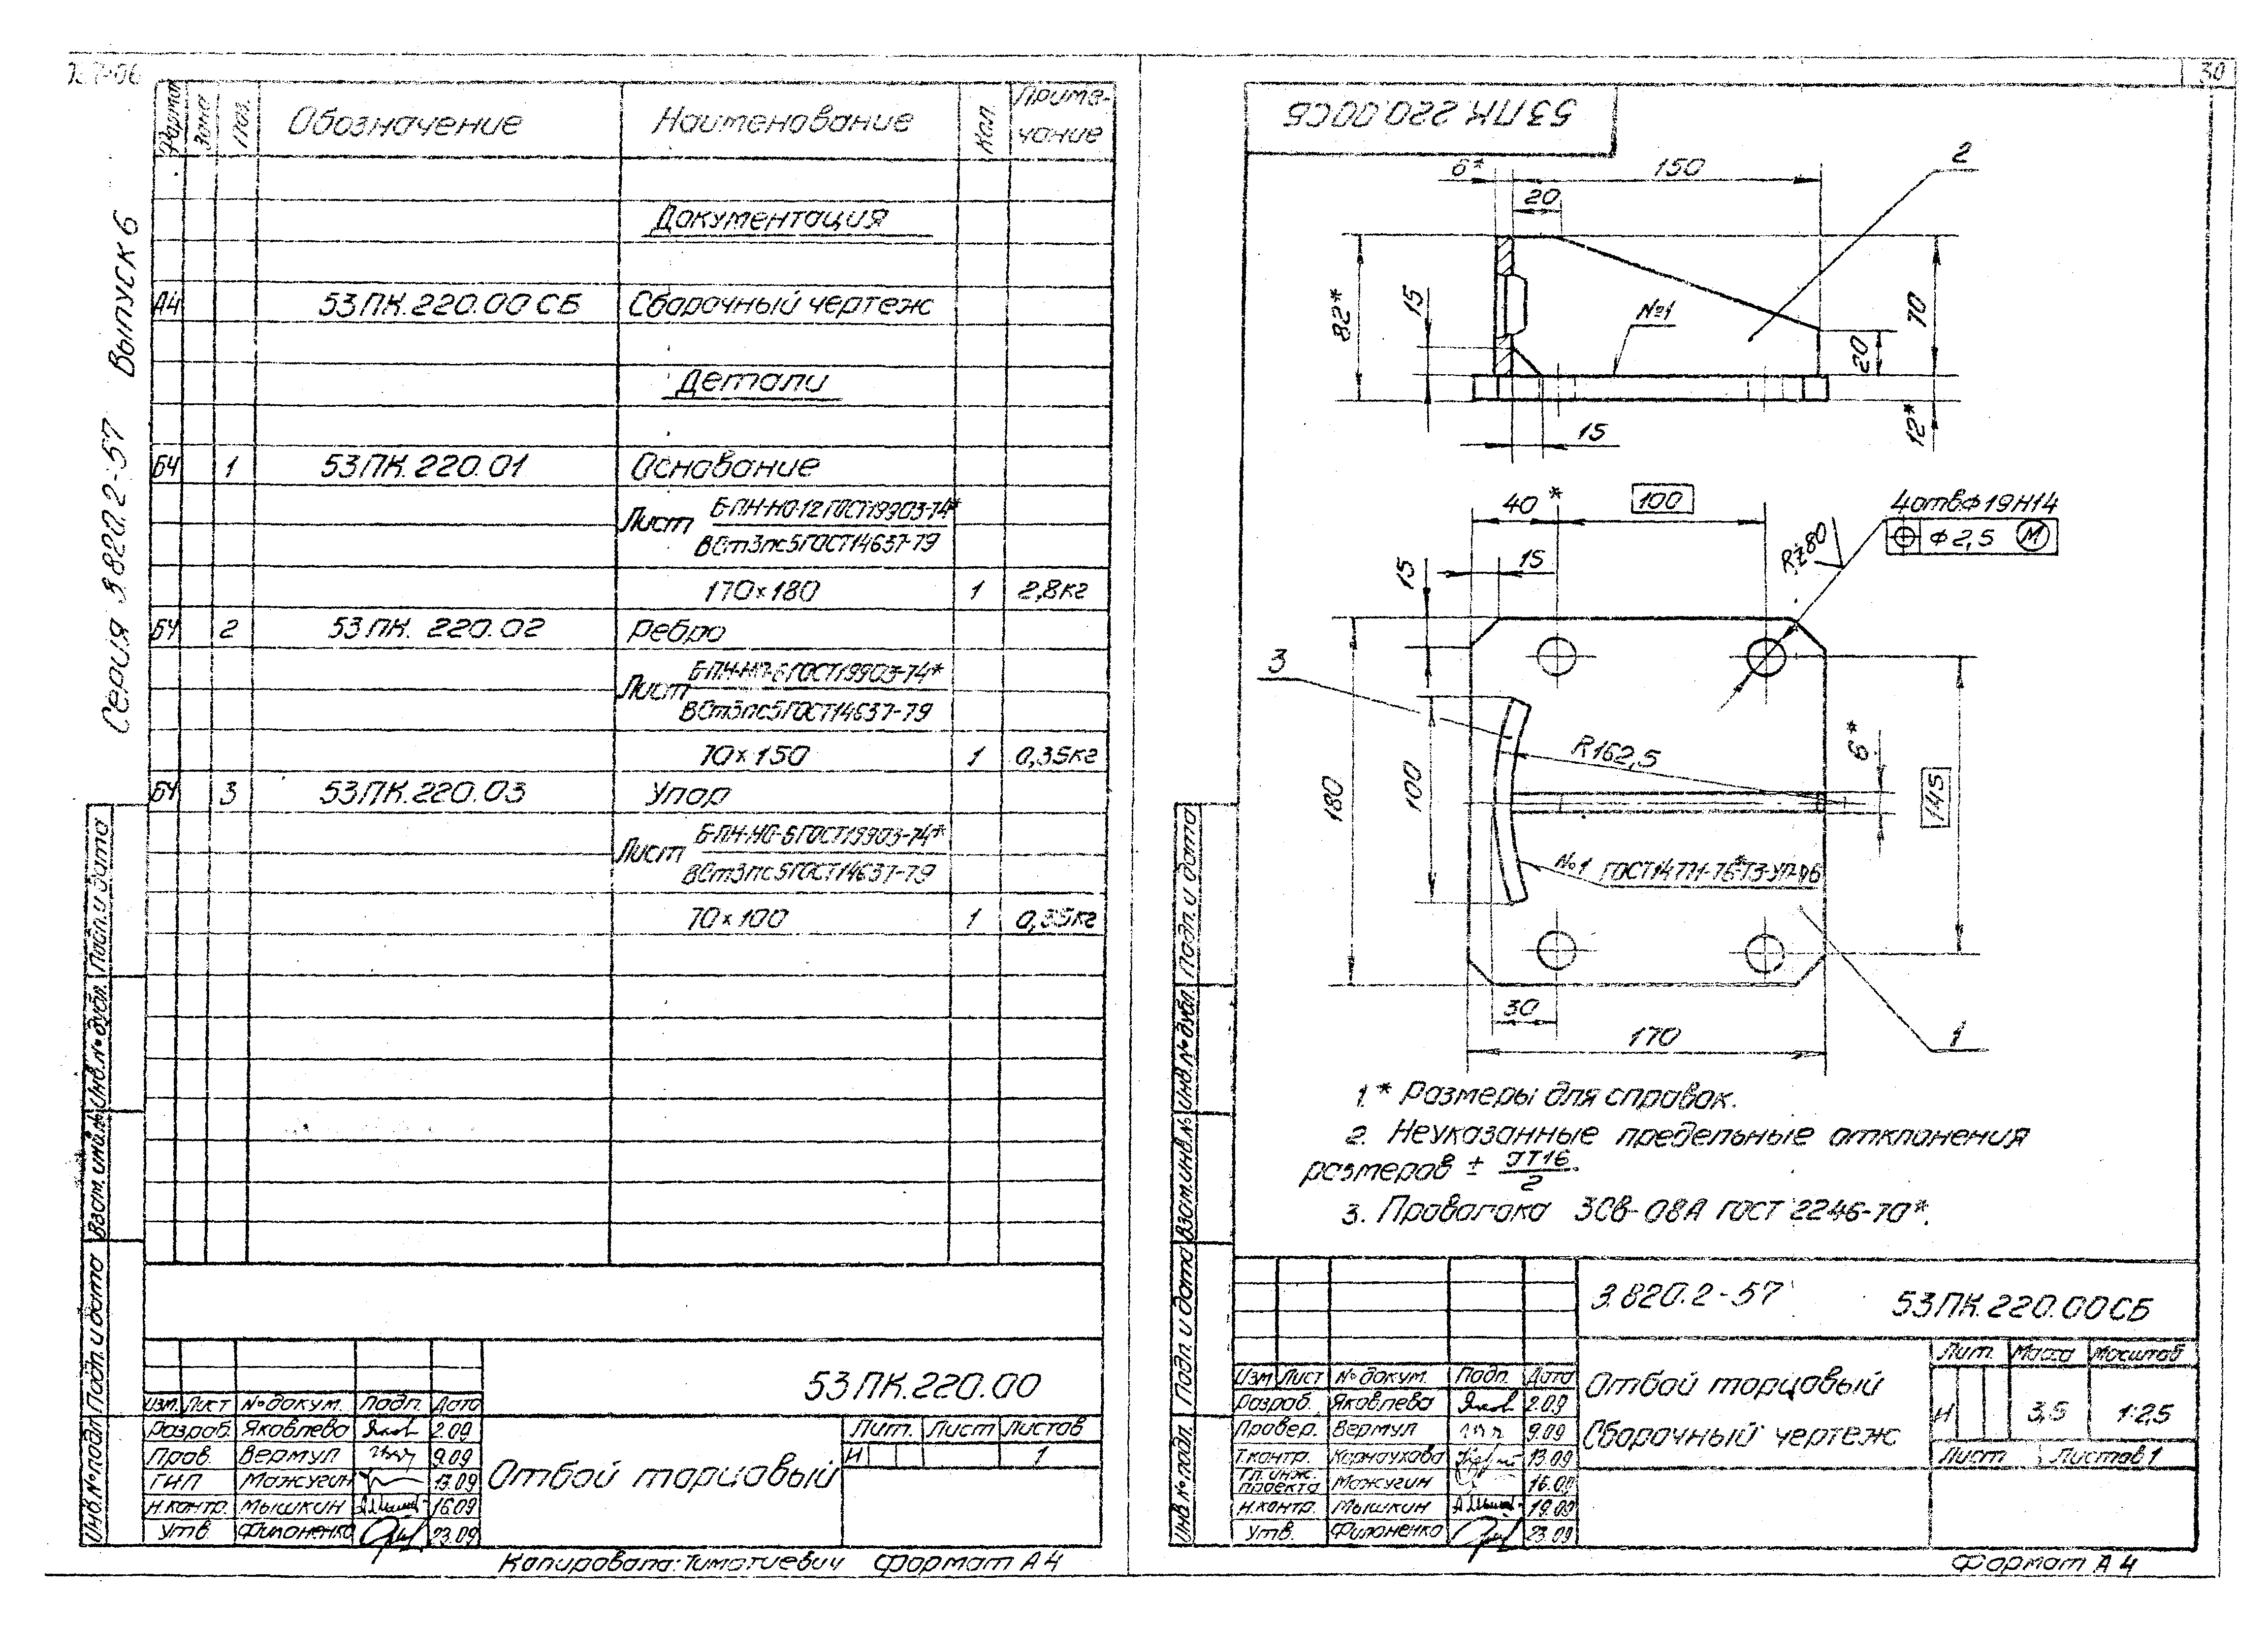 Серия 3.820.2-57 Выпуск 6
Формат Зона Поз. Обозначение Наименование Кол. Приме-
чание
Документация
А4 53ПК.220.00 СБ Сборочный чертеж
Детали
БЧ 1 53ПК.220.01 Основание
Лист Б-ПН-НО-12 ГОСТ19903-74*
ВСт3пс5 ГОСТ14637-79
170×180 1 2,8кг
БЧ 2 53ПК. 220.02 Ребро
Лист Б-ПН-НО-6 ГОСТ19903-74*
ВСт3пс5 ГОСТ14637-79
70×150 1 0,35кг
БЧ 3 53ПК.220.03 Упор
Лист Б-ПН-НО-6 ГОСТ19903-74*
ВСт3пс5 ГОСТ14637-79
70×100 1 0,35кг
Инв.№ подл. Подп. и дата Взам. инв.№ Инв.№ дубл. Подп. и дата
53ПК.220.00
Изм. Лист № докум. Подп. Дата
Разраб. Яковлева 2.09
Пров. Вермул 9.09
ГИП Мажугин 13.09
Н.контр. Мышкин 16.09
Утв. Филоненко 23.09
Отбой торцовый
Лит. Лист Листов
И 1
Копировала: Тиматиевич Формат А4
30
53ПК.220.00СБ
6* 150 2
20
82* 15 №1 70 20
12*
15
40* 100 4отв ф19Н14
Rz80 ф2,5 М
15 15
3
R162,5 6*
180 100 145
№1 ГОСТ14771-76*-Т3-УП-6
30
170 1
1.* Размеры для справок.
2. Неуказанные предельные отклонения
размеров ± JT16/2.
3. Проволока 3Св-08А ГОСТ 2246-70*.
Инв.№ подл. Подп. и дата Взам.инв.№ Инв.№ дубл. Подп. и дата
3.820.2-57 53ПК.220.00СБ
Изм Лист № докум. Подп. Дата
Разраб. Яковлева 2.09
Провер. Вермул 9.09
Т.контр. Карнаухова 13.09
Гл. инж. проекта Мажугин 16.09
Н.контр. Мышкин 19.09
Утв. Филоненко 23.09
Отбой торцовый
Сборочный чертеж
Лит. Масса Масштаб
И 3,5 1:2,5
Лист Листов 1
Формат А4